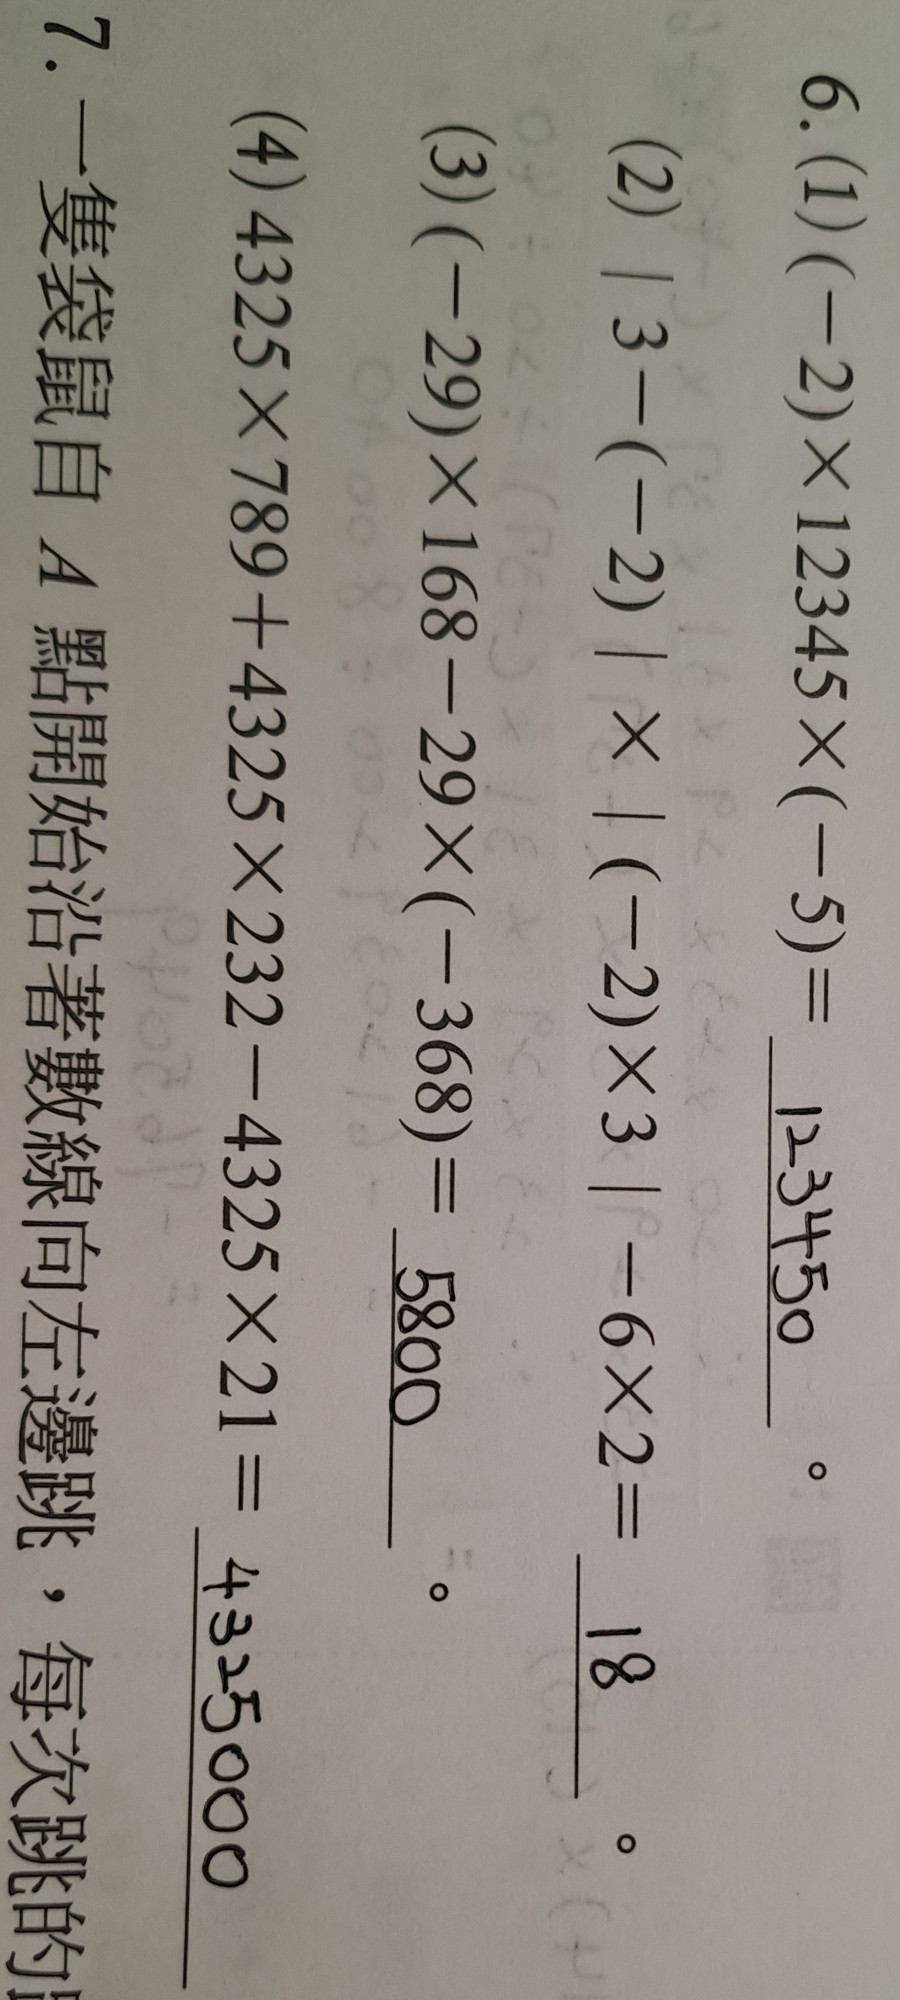 6.(1)(−2)×12345×(−5)=123450。
(2)|3−(−2)|×|(−2)×3|−6×2=18。
(3)(−29)×168−29×(−368)=5800。
(4)4325×789+4325×232−4325×21=4325000
7.一隻袋鼠自 A 點開始沿著數線向左邊跳，每次跳的